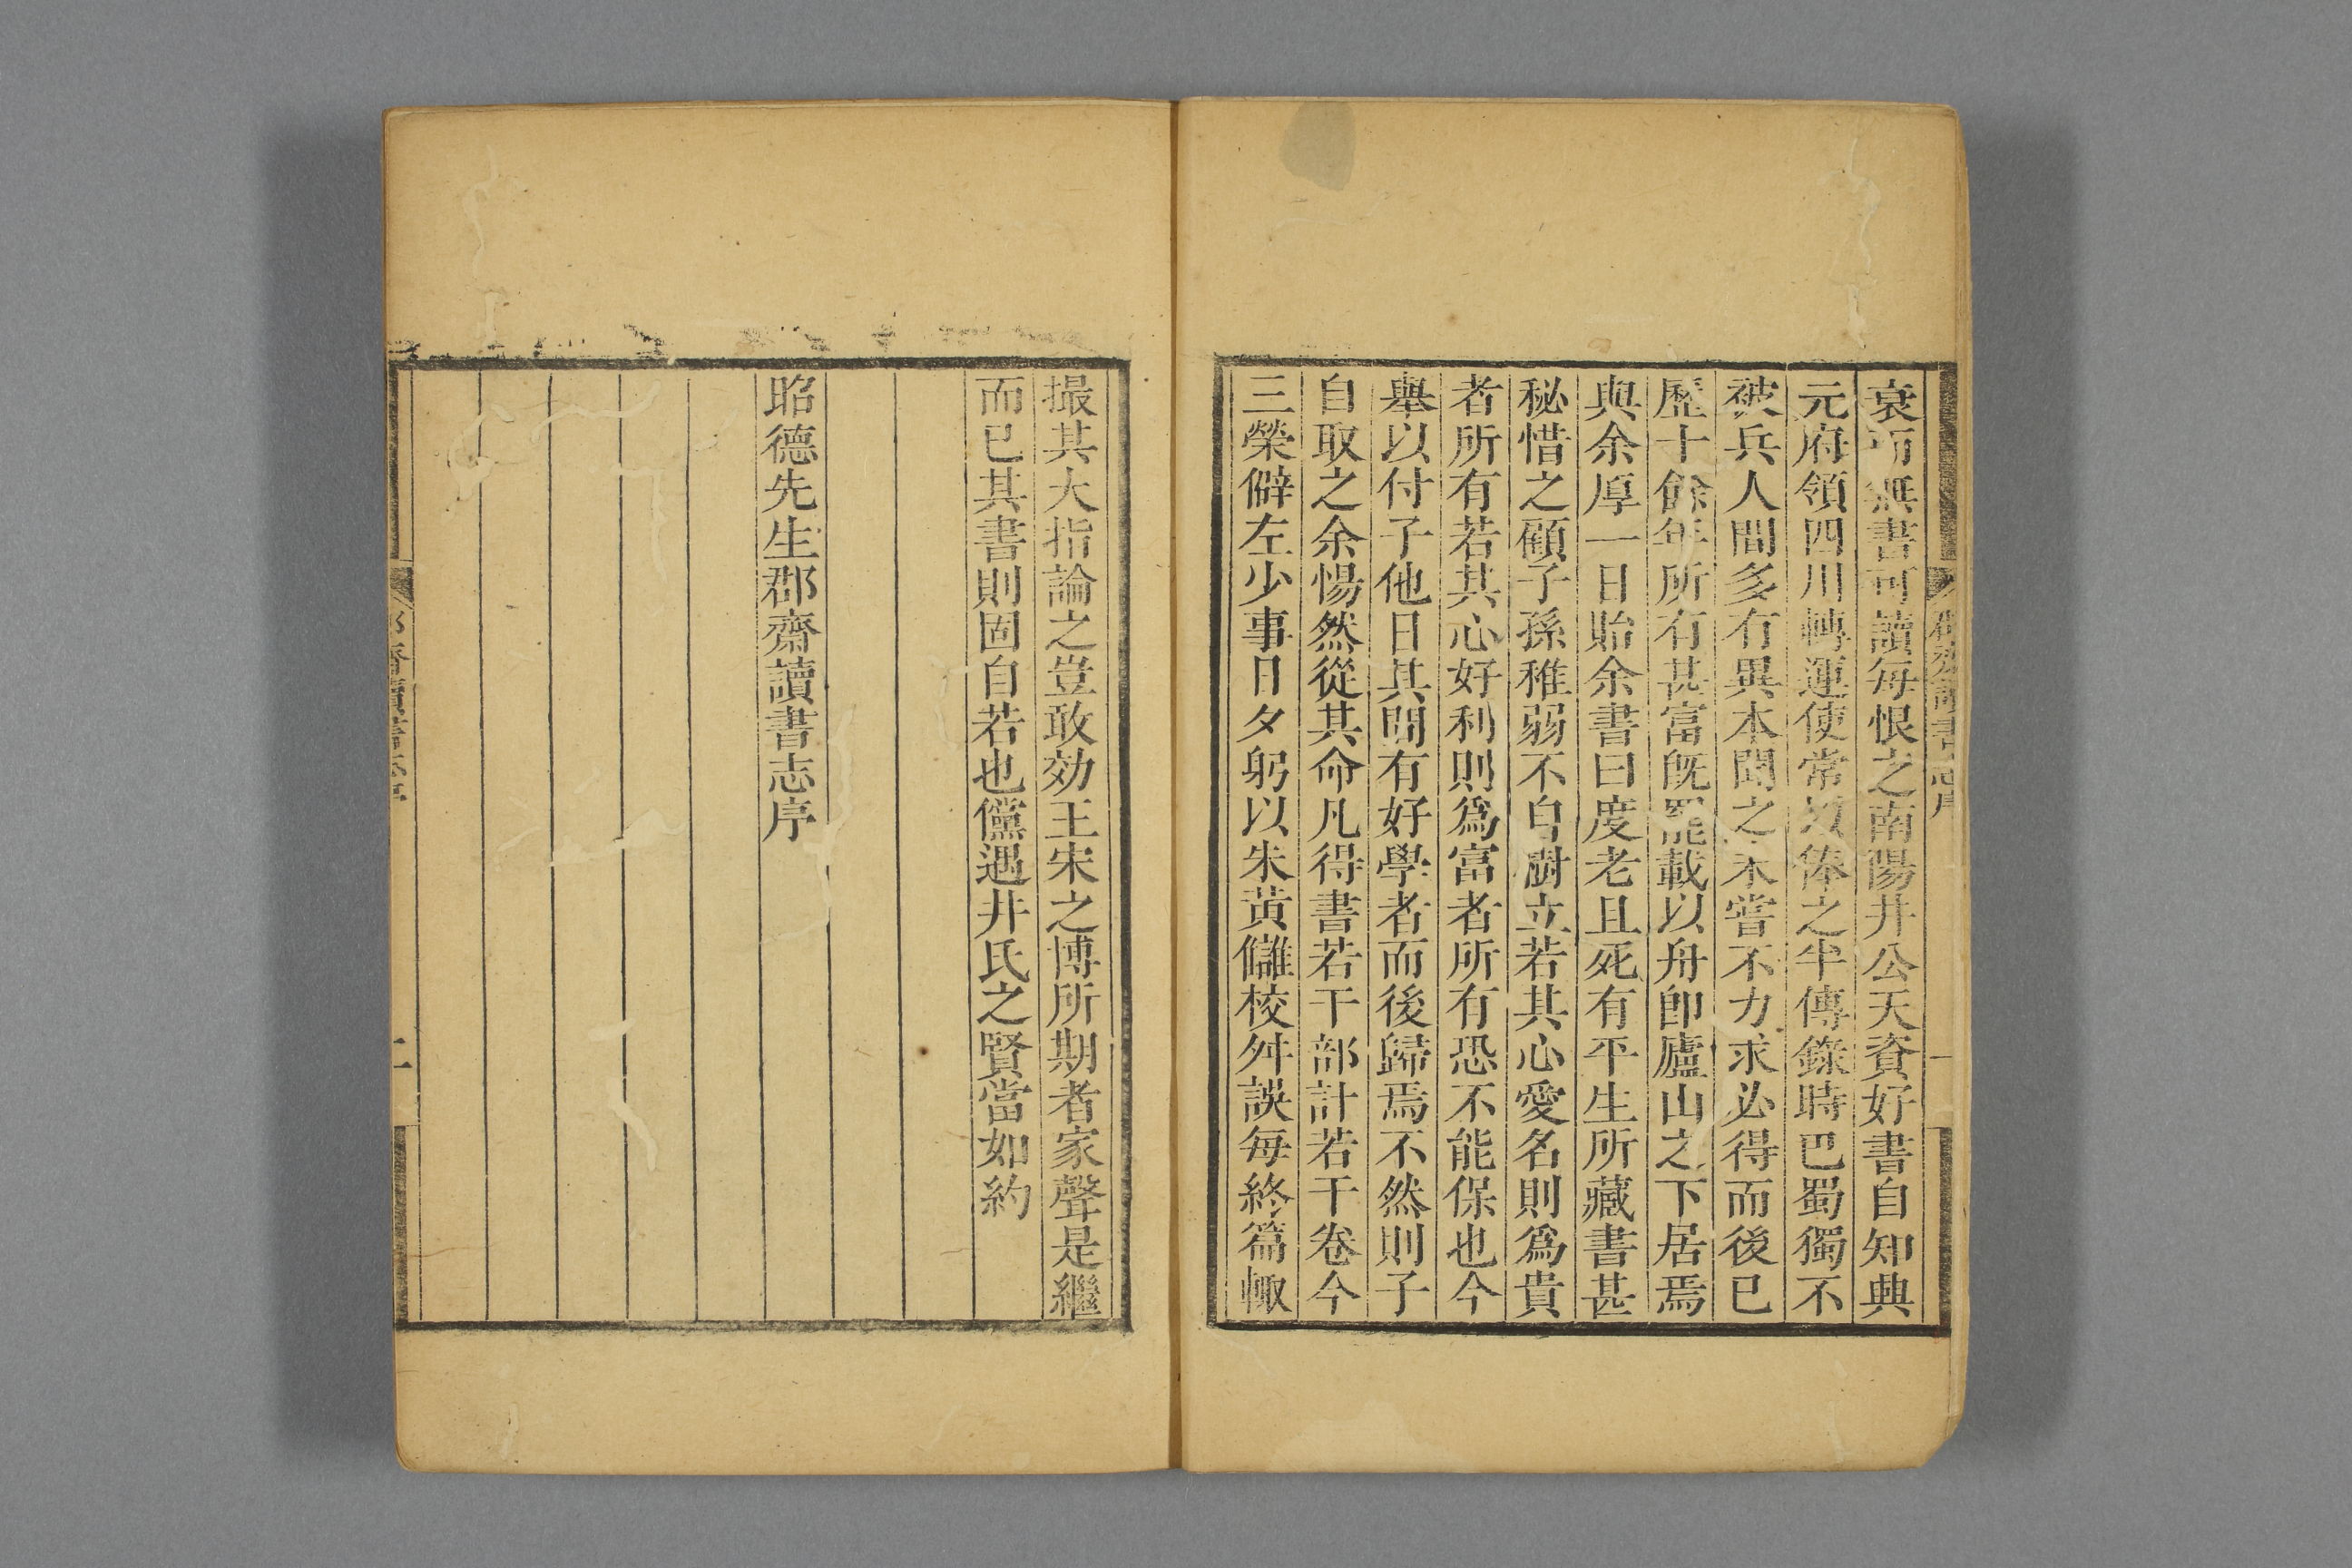 衰而無書可讀每恨之南陽井公天資好書自知典
元府領四川轉運使常以俸之半傳錄時巴蜀獨不
被兵人間多有異本聞之未嘗不力求必得而後已
歷十餘年所有甚富旣罷載以舟卽廬山之下居焉
與余厚一日貽余書曰度老且死有平生所藏書甚
秘惜之顧子孫稚弱不自樹立若其心愛名則爲貴
者所有若其心好利則爲富者所有恐不能保也今
舉以付子他日其間有好學者而後歸焉不然則子
自取之余惕然從其命凡得書若干部計若干卷今
三榮僻左少事日夕躬以朱黃讎校舛誤每終篇輙
撮其大指論之豈敢効王宋之博所期者家聲是繼
而已其書則固自若也儻遇井氏之賢當如約
昭德先生郡齋讀書志序